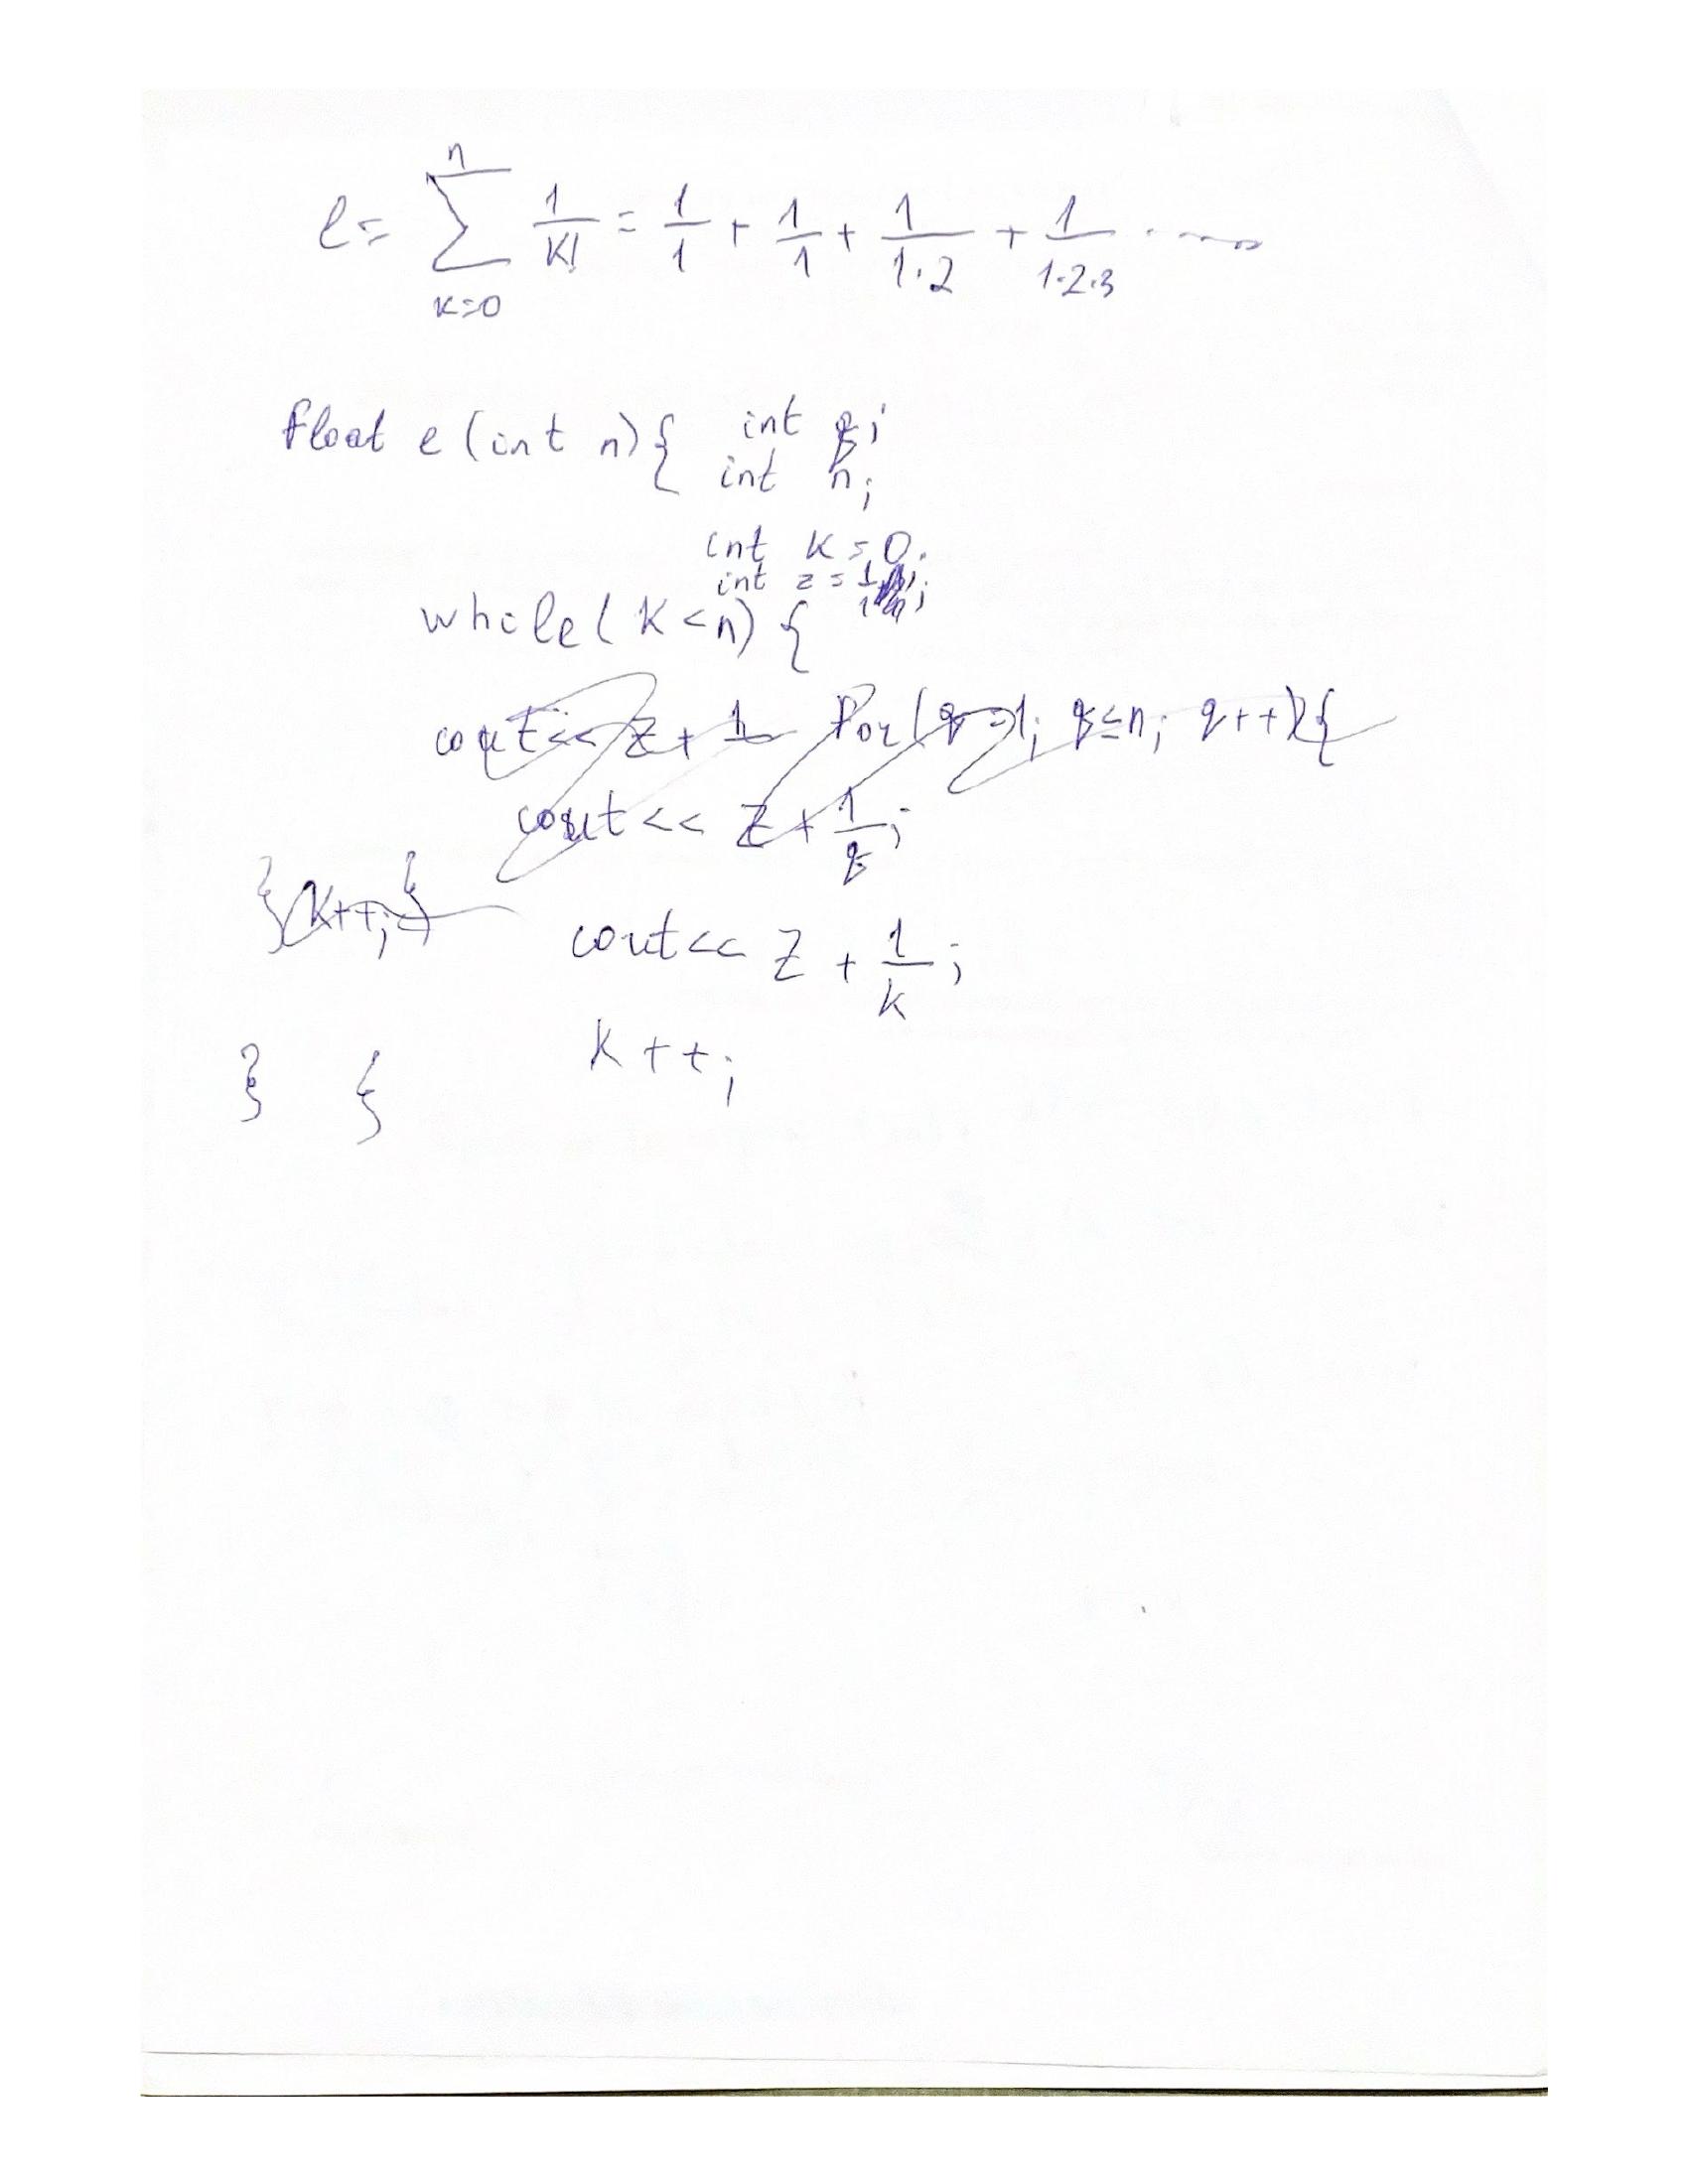 e = \sum_{k=0}^{n} \frac{1}{k!} = \frac{1}{1} + \frac{1}{1} + \frac{1}{1·2} + \frac{1}{1·2·3} ....
float e (int n) { int q;
int n;
int k = 0;
int z = \frac{1}{1};
while ( k < n) {
cout << z + 1 for ( q = 1; q ≤ n; q ++) {
cout << z + \frac{1}{q};
} k++; }
cout << z + \frac{1}{k};
k ++;
} {